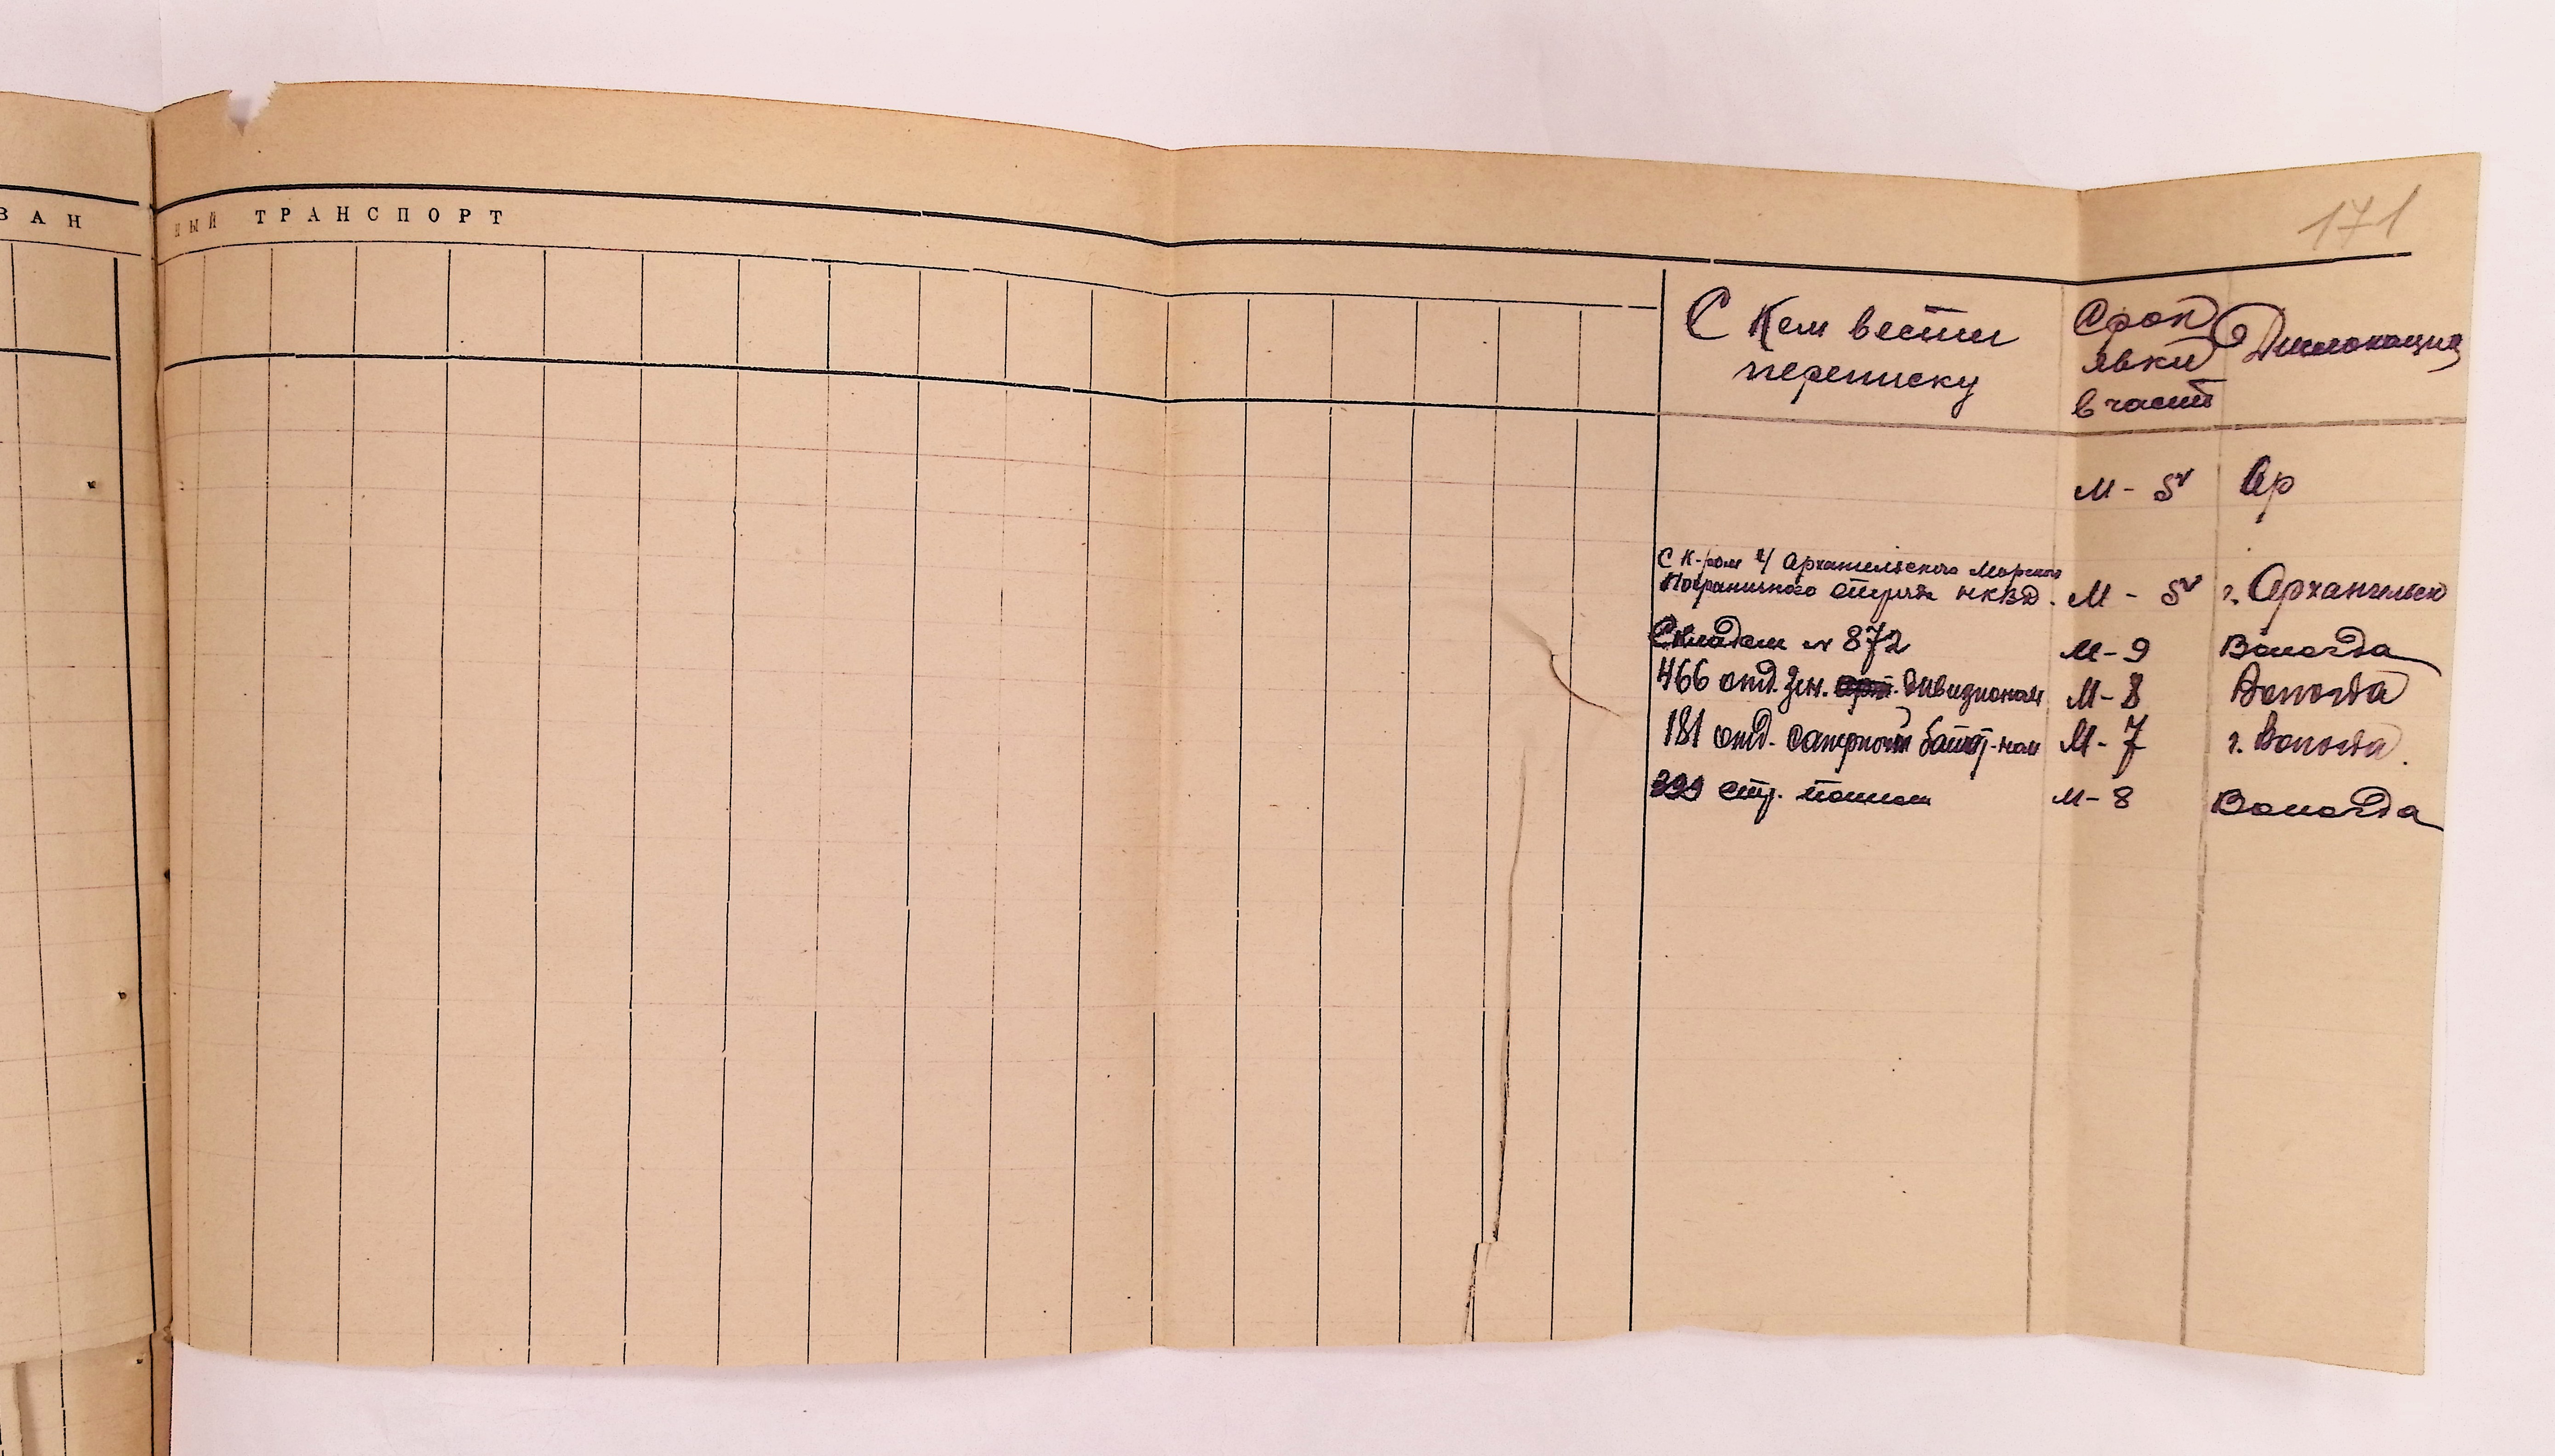 ВАН
НЫЙ ТРАНСПОРТ
171
С Кем вести
переписку
Срок
явки
в част
Дислокация
М - 5 Ар
С К-ром в/ч Архангельского Морского
Пограничного Отряда НКВД. М - 5 г. Архангельск
Складом № 872 М-9 Вологда
466 отд. Зен. арт. дивизионом М-8 Вологда
181 отд. саперном бат-ном М-7 г. Вологда.
399 стр. полком М-8 Вологда